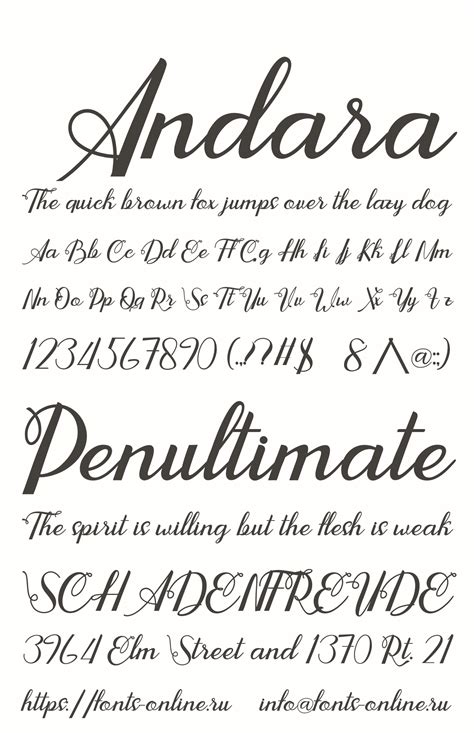 Andara
The quick brown fox jumps over the lazy dog
Aa Bb Cc Dd Ee Ff Gg Hh Ii Jj Kk Ll Mm
Nn Oo Pp Qq Rr Ss Tt Uu Vv Ww Xx Yy Zz
1234567890 (.,;?!#$ & /\@:;)
Penultimate
The spirit is willing but the flesh is weak
SCHADENFREUDE
3964 Elm Street and 1370 Rt. 21
https://fonts-online.ru info@fonts-online.ru